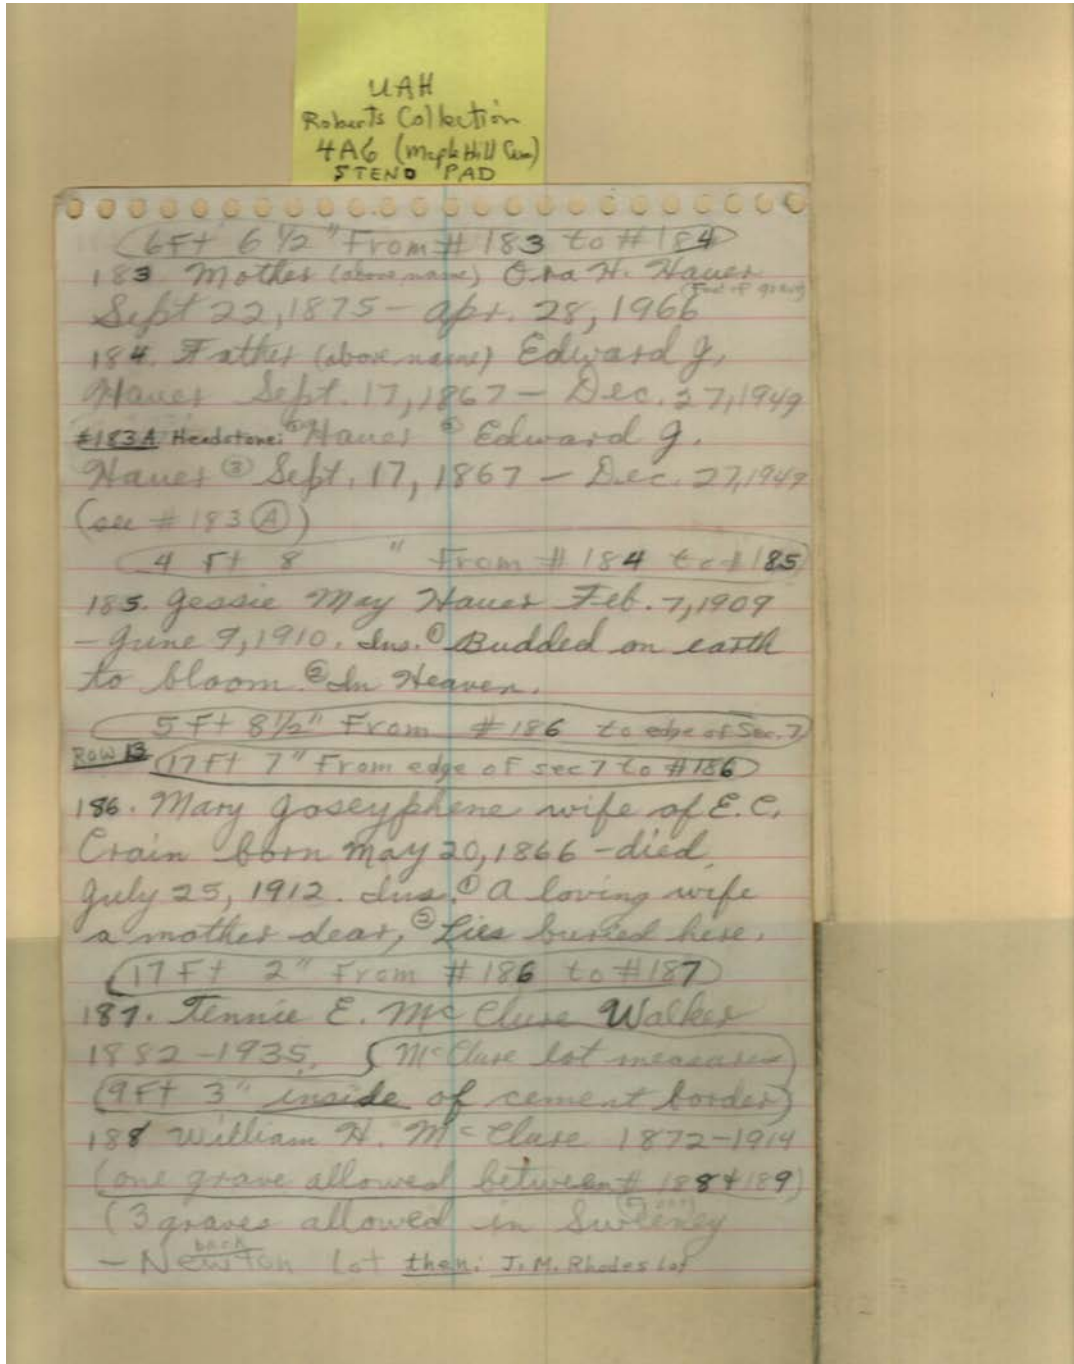 UAH
Roberts Collection
4A6 (Maple Hill Cem)
STENO PAD
6 Ft 6 1/2" From # 183 to # 184
183. Mother (above name) Ora H. Hauer
(Foot of grave)
Sept 22, 1875 - Apr. 28, 1966
184. Father (above name) Edward J.
Hauer Sept. 17, 1867 - Dec. 27, 1949
#183A Headstone: ① Hauer ② Edward J.
Hauer ③ Sept. 17, 1867 - Dec. 27, 1949
(see # 183 Ⓐ)
4 Ft 8 " From # 184 to # 185
185. Jessie May Hauer Feb. 7, 1909
- June 9, 1910. Ins. ① Budded on earth
to bloom ② In Heaven.
5 Ft 8 1/2" From # 186 to edge of Sec. 7
Row 13 17 Ft 7" From edge of sec 7 to #186
186. Mary Joseyphene wife of E. C.
Crain born May 20, 1866 - died
July 25, 1912. Ins. ① A loving wife
a mother dear, ② Lies buried here.
17 Ft 2" From # 186 to #187
187. Tennie E. McClure Walker
1882 - 1935. McClure lot measures
9 Ft 3" inside of cement border
188 William H. McClure 1872-1914
(one grave allowed between # 188 & 189)
(3 graves allowed in Sweeney
back
- Newton Lot then: J. M. Rhodes lot